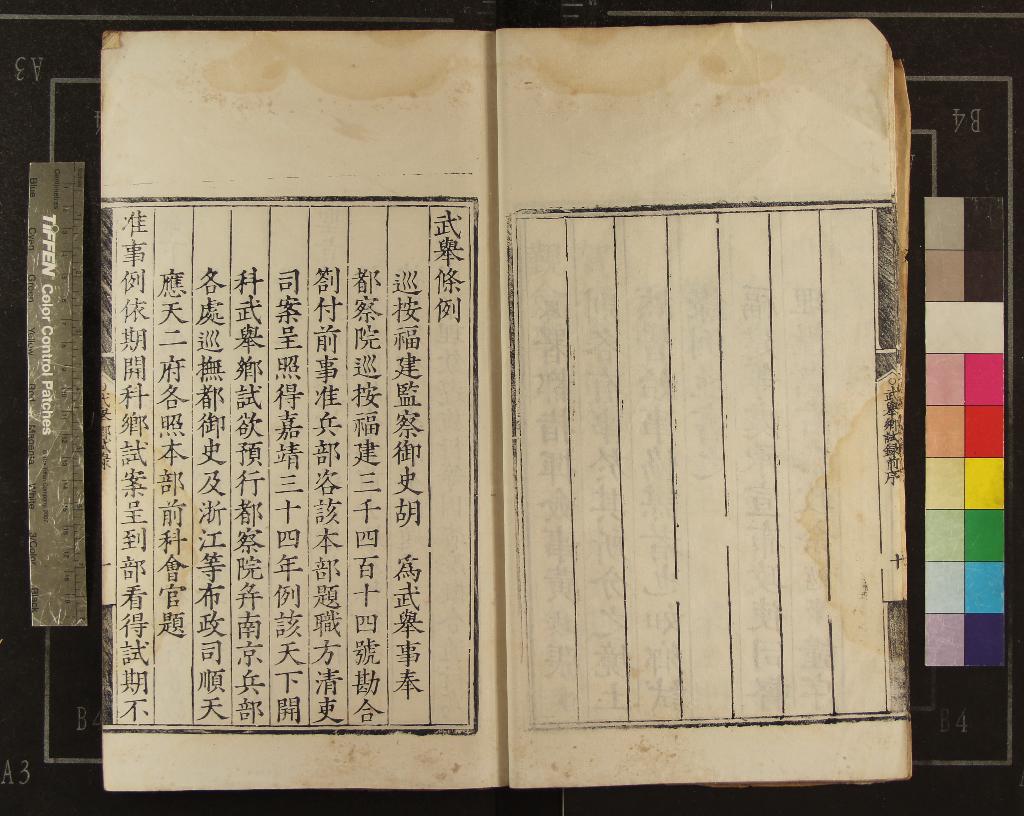 武舉鄉試錄前序
十
武舉條例
巡按福建監察御史胡　爲武舉事奉
都察院巡按福建三千四百十四號勘合
劄付前事准兵部咨該本部題職方清吏
司案呈照得嘉靖三十四年例該天下開
科武舉鄉試欲預行都察院弁南京兵部
各處巡撫都御史及浙江等布政司順天
應天二府各照本部前科會官題
准事例依期開科鄉試案呈到部看得試期不
一
TIFFEN Color Control Patches
A3
B4
B4
A3
B4